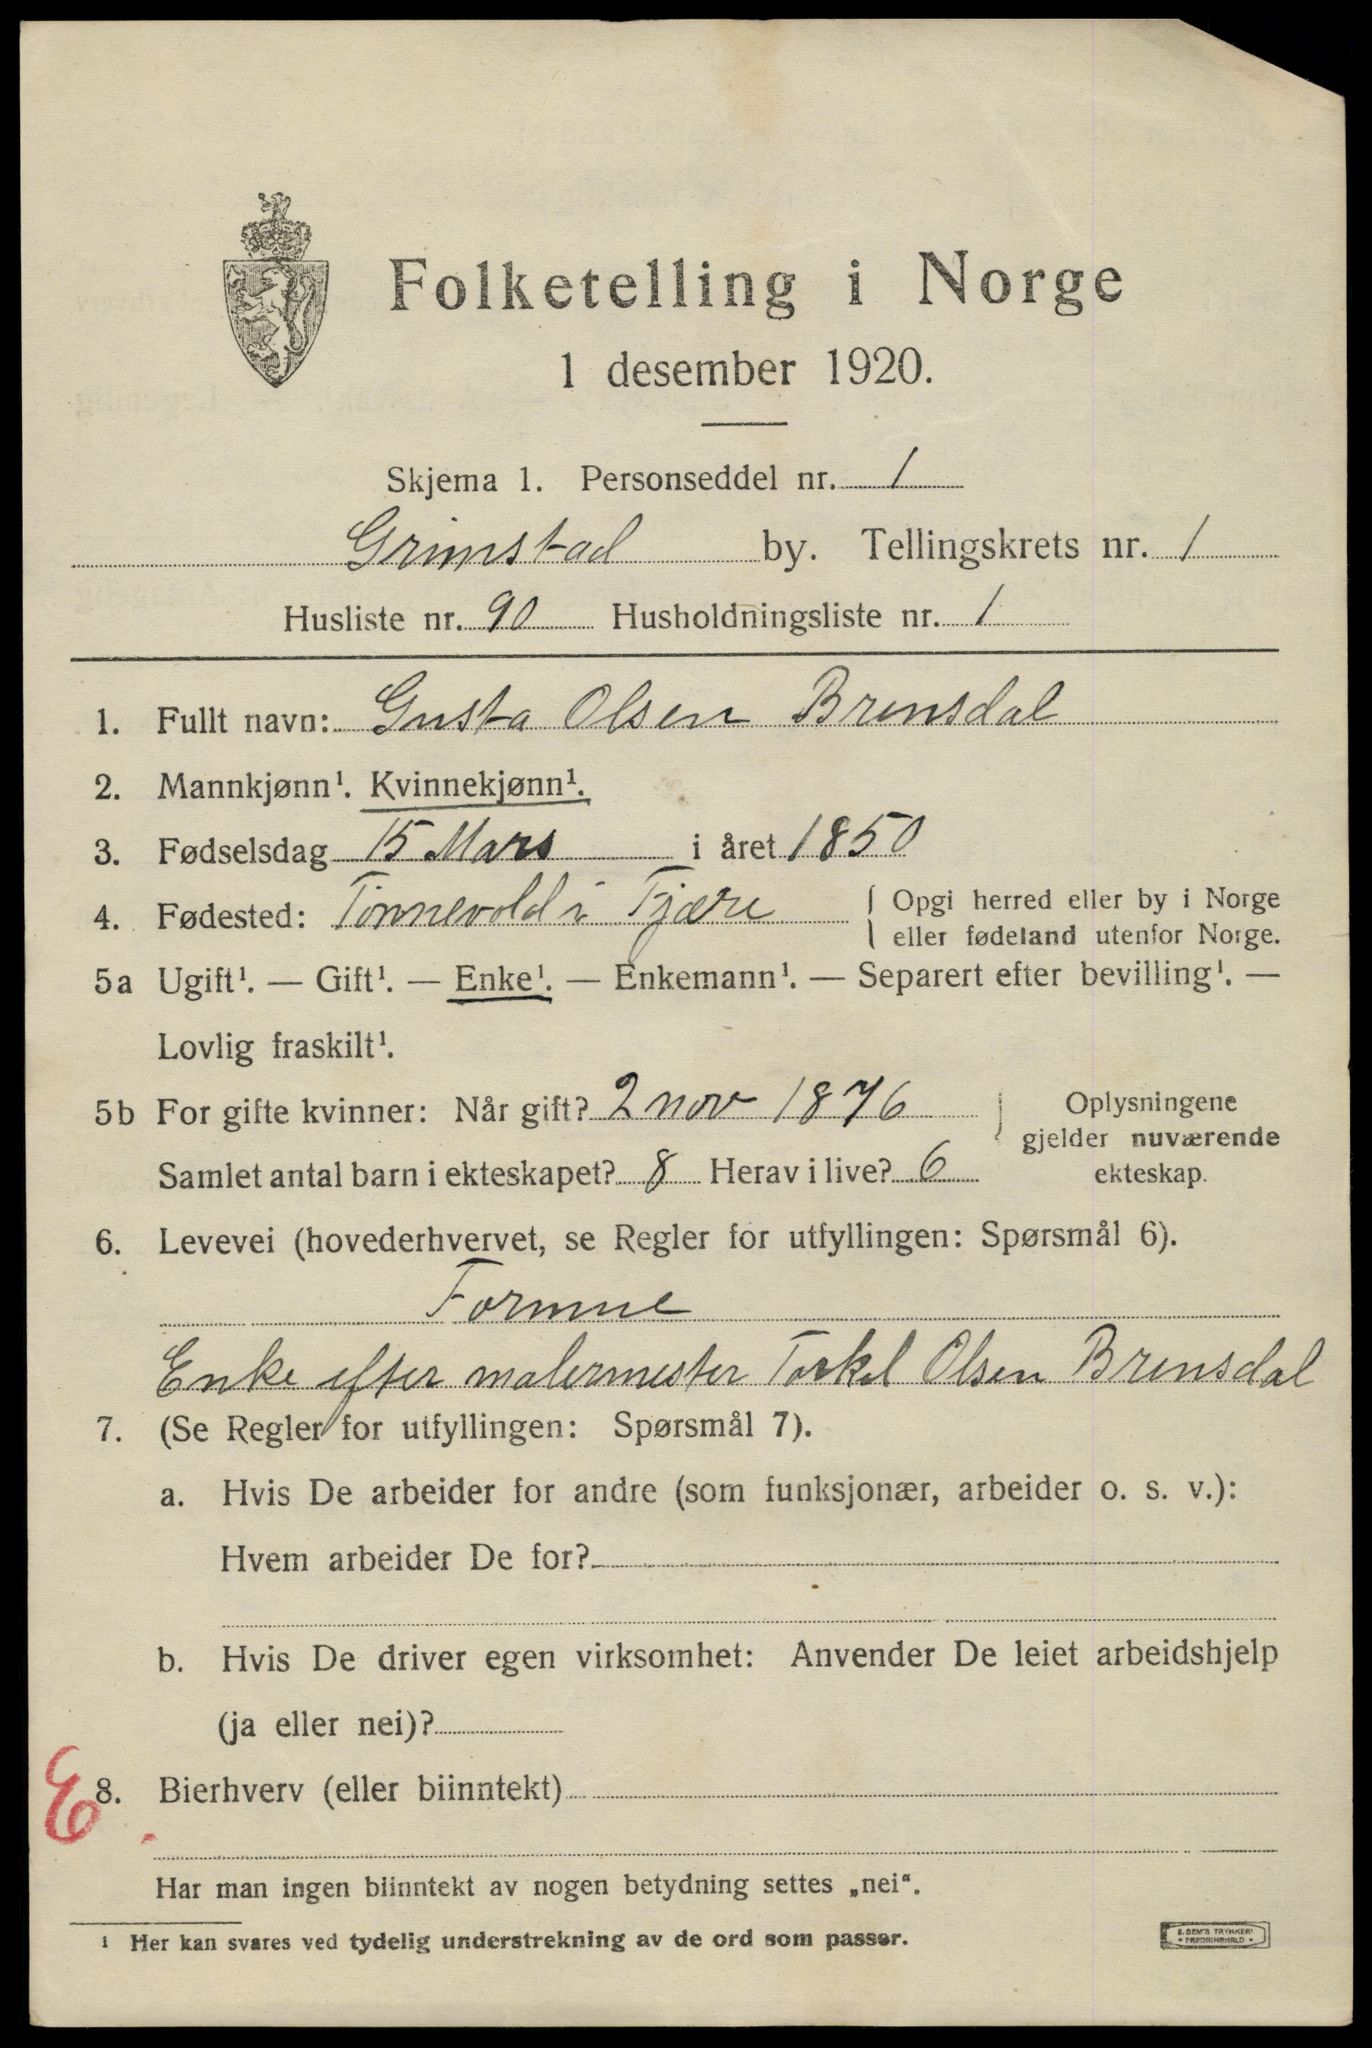 Folketelling i Norge
1 desember 1920.
Skjema 1. Personseddel nr. 1
Grimstad by. Tellingskrets nr. 1
Husliste nr. 90 Husholdningsliste nr. 1
1. Fullt navn: Gusta Olsen Brensdal
2. Mannkjønn¹. Kvinnekjønn¹.
3. Fødselsdag 15 Mars i året 1850
4. Fødested: Tønnevold i Fjære { Opgi herred eller by i Norge
eller fødeland utenfor Norge.
5a Ugift¹. — Gift¹. — Enke¹. — Enkemann¹. — Separert efter bevilling¹. —
Lovlig fraskilt¹.
5b For gifte kvinner: Når gift? 2 nov 1876
Samlet antal barn i ekteskapet? 8 Herav i live? 6
Oplysningene
gjelder nuværende
ekteskap.
6. Levevei (hovederhvervet, se Regler for utfyllingen: Spørsmål 6).
Formue
Enke efter malermester Torkel Olsen Brensdal
7. (Se Regler for utfyllingen: Spørsmål 7).
a. Hvis De arbeider for andre (som funksjonær, arbeider o. s. v.):
Hvem arbeider De for?
b. Hvis De driver egen virksomhet: Anvender De leiet arbeidshjelp
(ja eller nei)?
E 8. Bierhverv (eller biinntekt)
Har man ingen biinntekt av nogen betydning settes „nei“.
¹ Her kan svares ved tydelig understrekning av de ord som passer.
E. SEM'S TRYKKERI
• FREDRIKSHALD •